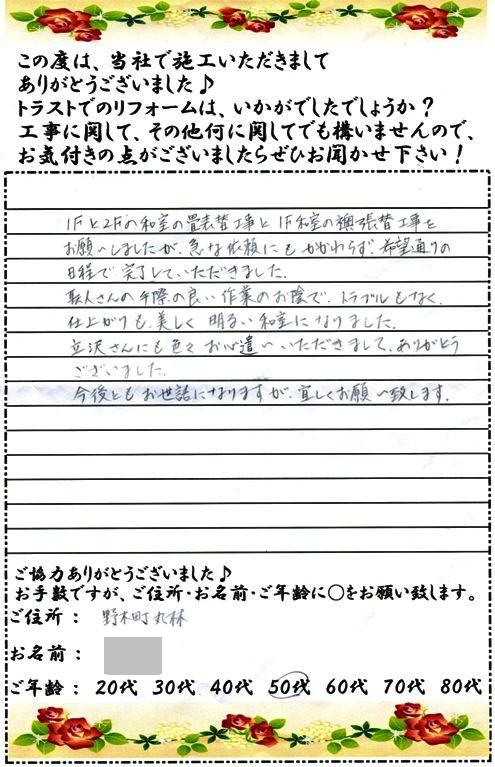 この度は、当社で施工いただきまして
ありがとうございました♪
トラストでのリフォームは、いかがでしたでしょうか？
工事に関して、その他何に関してでも構いませんので、
お気付きの点がございましたらぜひお聞かせ下さい！
1Fと2Fの和室の畳表替工事と1F和室の襖張替工事を
お願いしましたが、急な依頼にもかかわらず、希望通りの
日程で完了していただきました。
職人さんの手際の良い作業のお陰で、トラブルもなく、
仕上がりも美しく明るい和室になりました。
立沢さんにも色々お心遣いいただきまして、ありがとう
ございました。
今後ともお世話になりますが、宜しくお願い致します。
ご協力ありがとうございました♪
お手数ですが、ご住所・お名前・ご年齢に○をお願い致します。
ご住所： 野木町丸林
お名前：
ご年齢： 20代 30代 40代 50代 60代 70代 80代